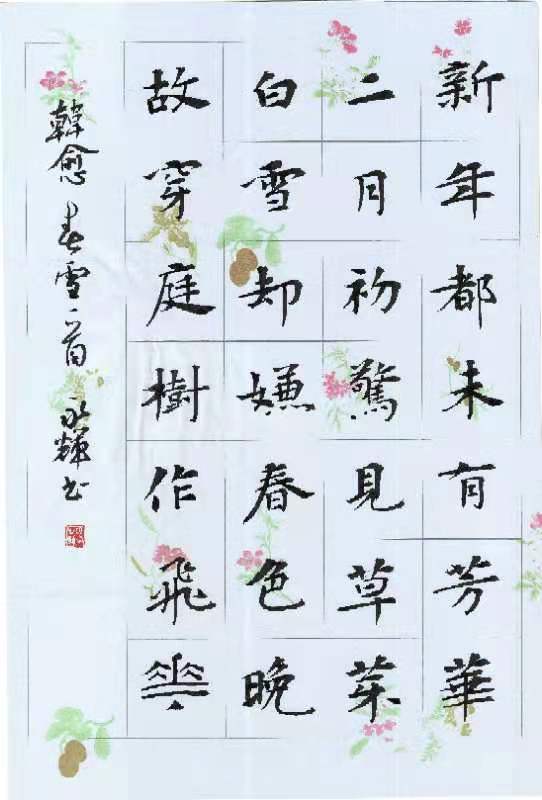 新年都未有芳華
二月初驚見草芽
白雪却嫌春色晚
故穿庭樹作飛花
韓愈春雪一首 永輝书